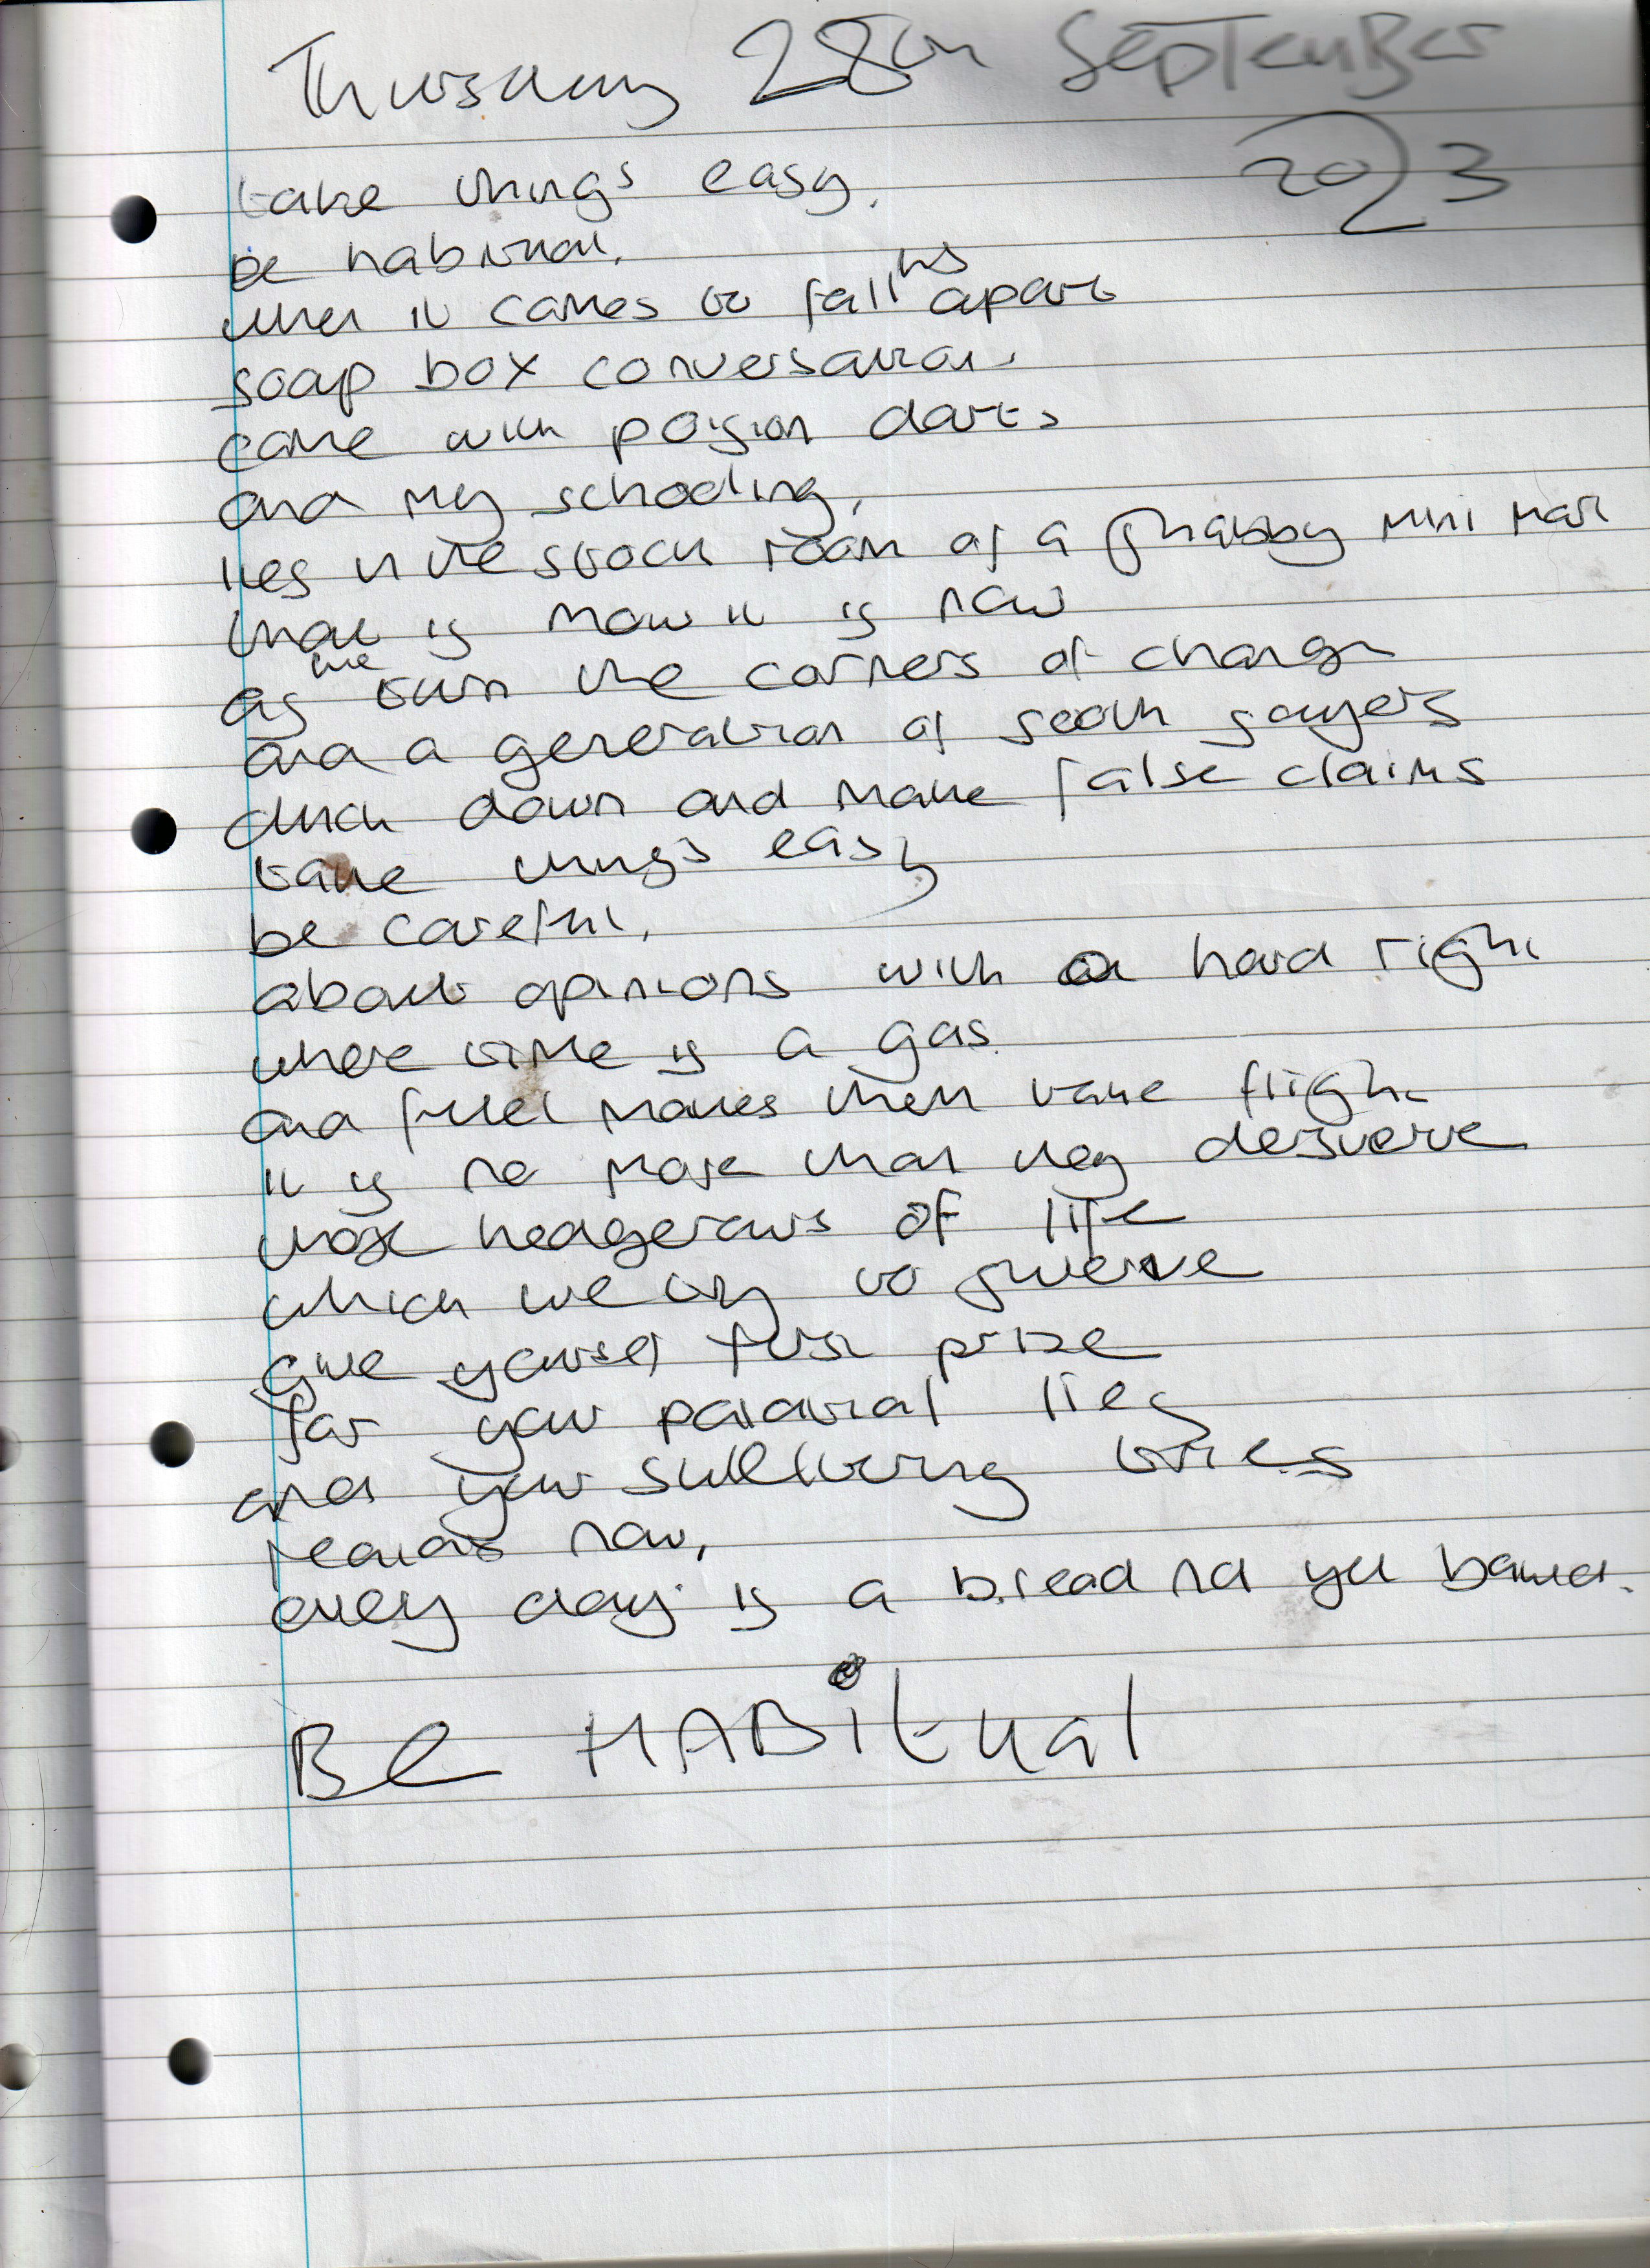 Thursday 28th September
2023
take things easy.
be habitual.
when it comes to falling apart
soap box conversations
come with poision darts
and my schooling,
lies in the stock room of a shabby mini mart
that is how it is now
as we turn the corners of change
and a generation of sooth sayers
duck down and make false claims
take things easy
be careful,
about opinions with a hard right
where time is a gas
and fuel makes them take flight
it is no more than they desverve
those hedgerows of life
which we try to swerve
give yourself first prize
for your lies
and your tries
now,
every day is a bread not yet baked.
Be HABitual